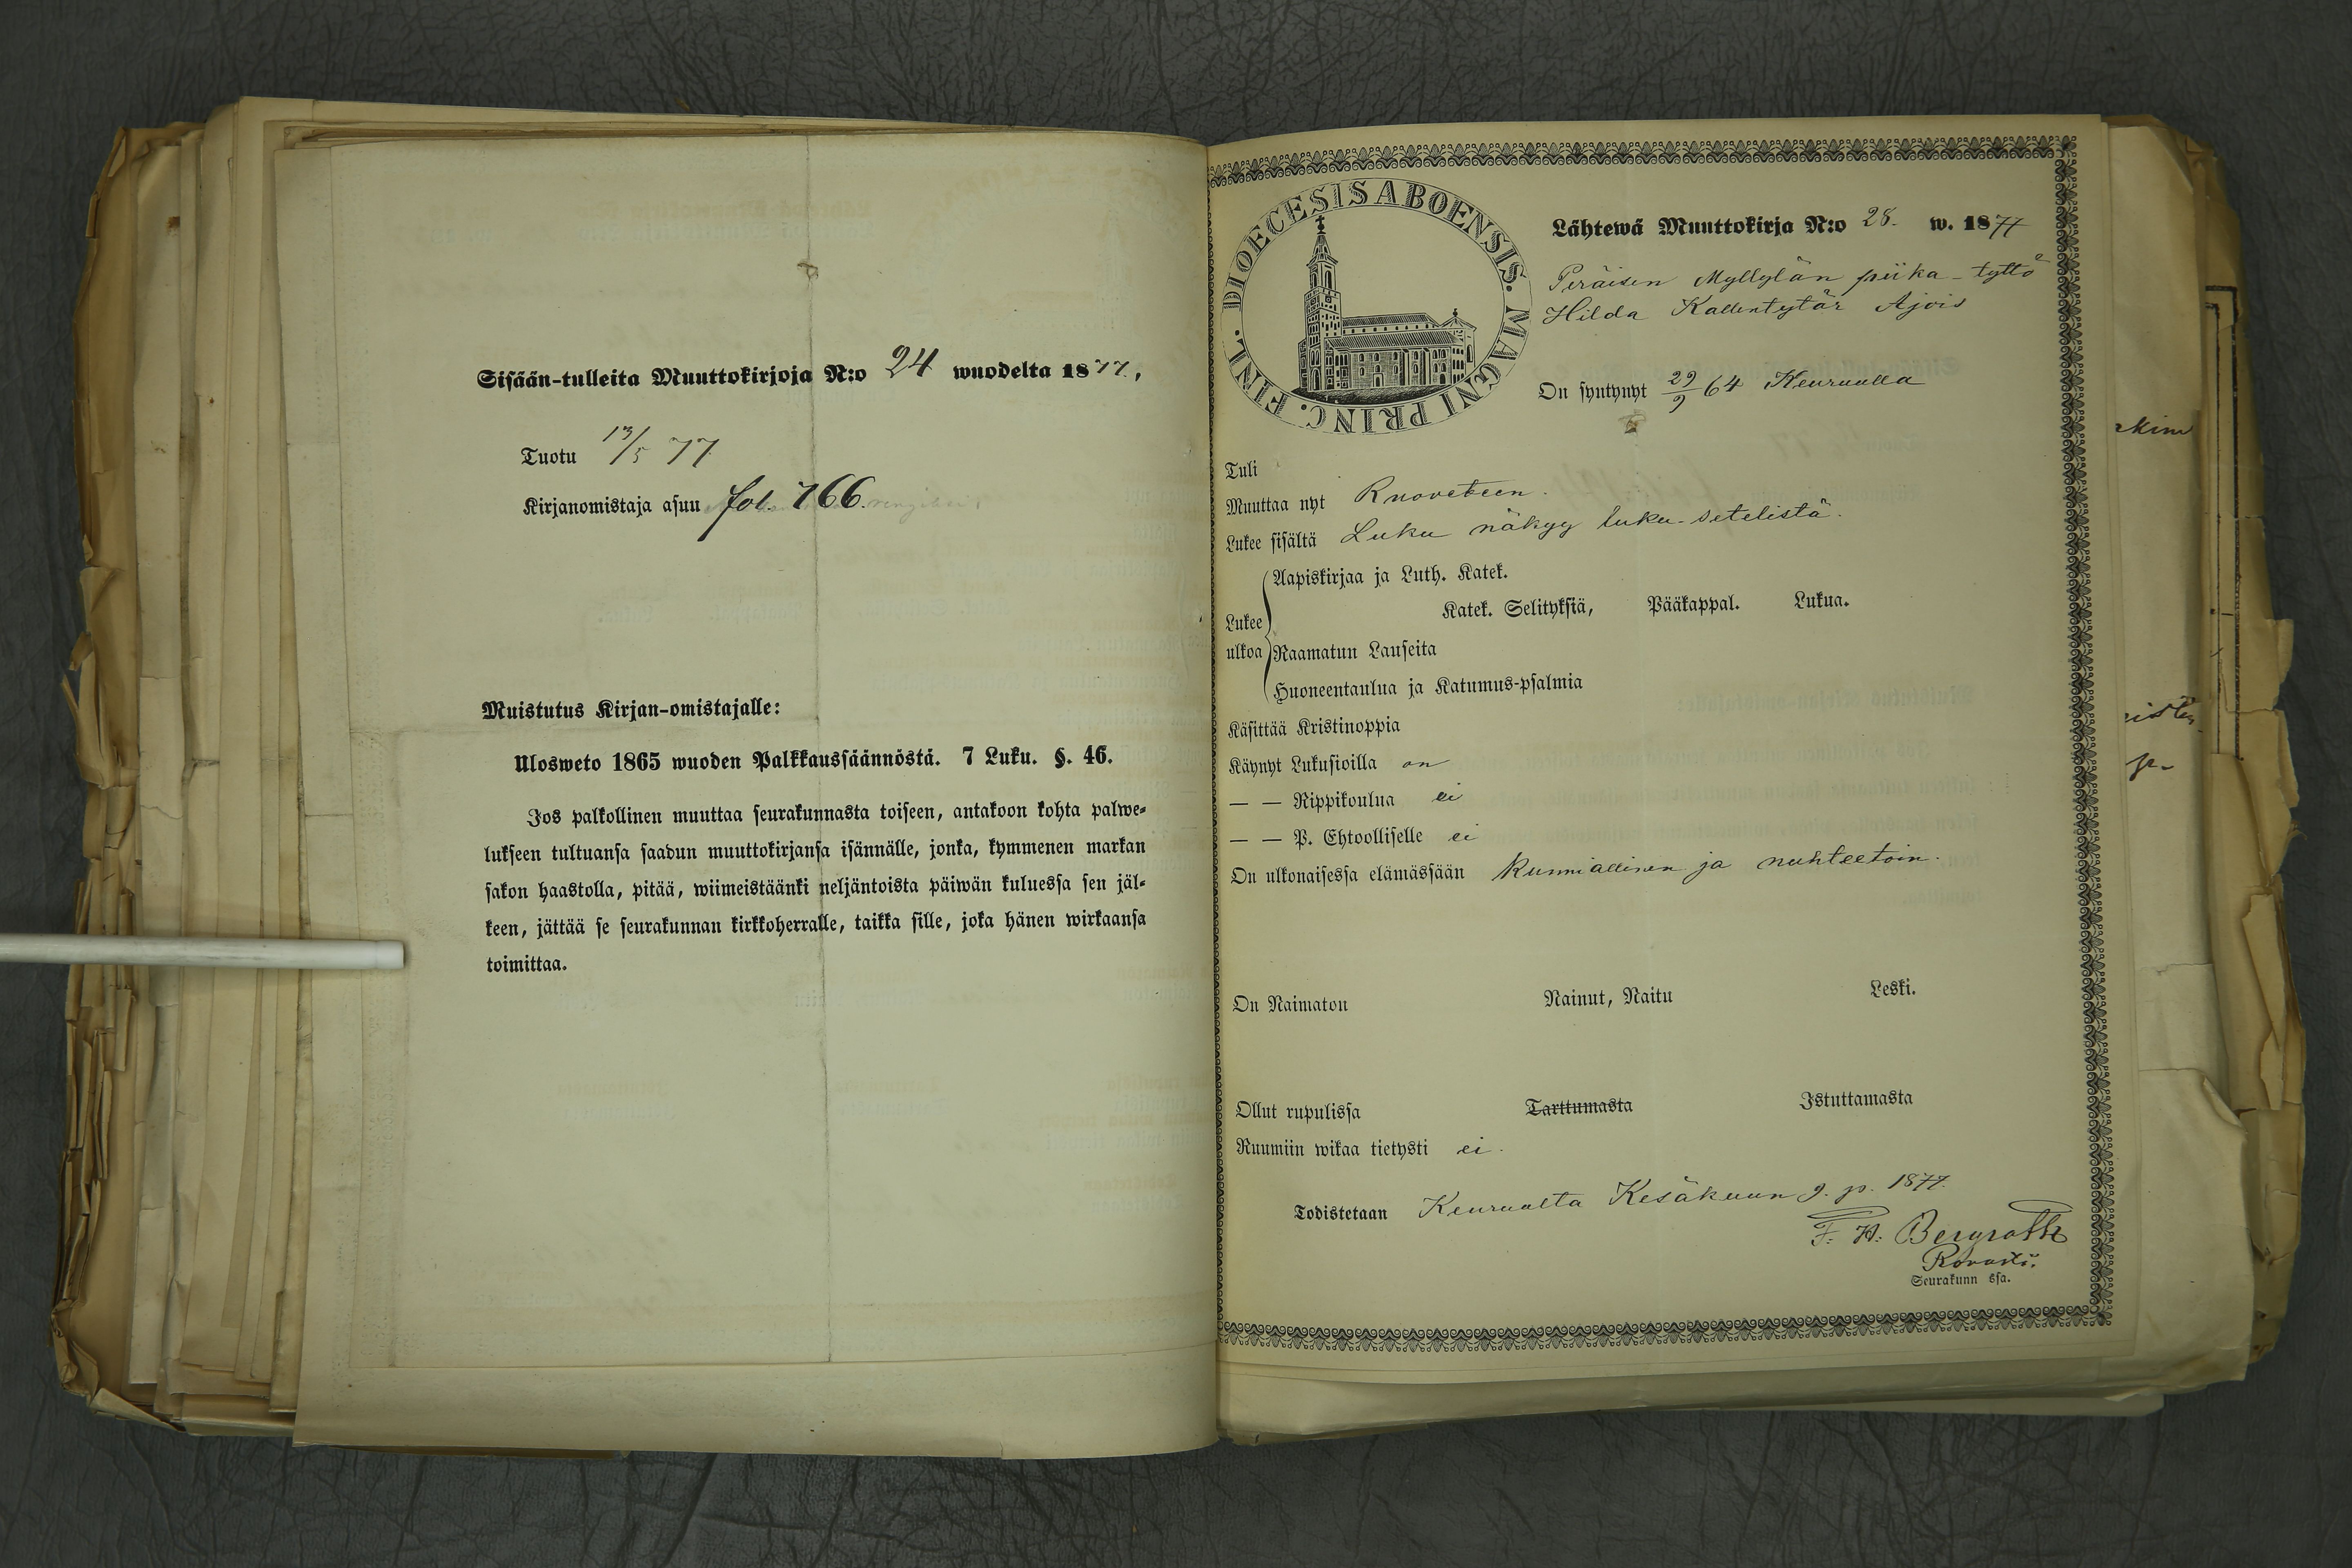 Sisään-tulleita Muuttokirjoja N:o 24 wuodelta 1877,
Tuotu 13/5 77
Kirjanomistaja asuu fol. 766.
Muistutus Kirjan-omistajalle:
Ulosweto 1865 wuoden Palkkaussäännöstä. 7 Luku. §. 46.
Jos palkollinen muuttaa seurakunnasta toiseen, antakoon kohta palwe-
lukseen tultuansa saadun muuttokirjansa isännälle, jonka, kymmenen markan
sakon haastolla, pitää, wiimeistäänki neljäntoista päiwän kuluessa sen jäl-
keen, jättää se seurakunnan kirkkoherralle, taikka sille, joka hänen wirkaansa
toimittaa.
DIOECESIS ABOENSIS. MAGNI PRINC. FINL.
Lähtewä Muuttokirja N:o 28. w. 1877
Peräisen Myllylän piika-tyttö
Hilda Kallentytär Ajois
On syntynyt 29/9 64 Keuruulla
Tuli
Muuttaa nyt Ruoveteen.
Lukee sisältä Luku näkyy luku-setelistä.
Aapiskirjaa ja Luth. Katek.
Katek. Selityksiä, Pääkappal. Lukua.
Lukee
ulkoa Raamatun Lauseita
Huoneentaulua ja Katumus-psalmia
Käsittää Kristinoppia
Käynyt Lukusioilla on
— — Rippikoulua ei
— — P. Ehtoolliselle ei
On ulkonaisessa elämässään kunniallinen ja nuhteetoin.
On Naimaton Nainut, Naitu Leski.
Ollut rupulissa Tarttumasta Istuttamasta
Ruumiin wikaa tietysti ei.
Todistetaan Keuruulta Kesäkuun 9. p. 1877.
F. H. Bergroth
Rovasti.
Seurakunn ssa.